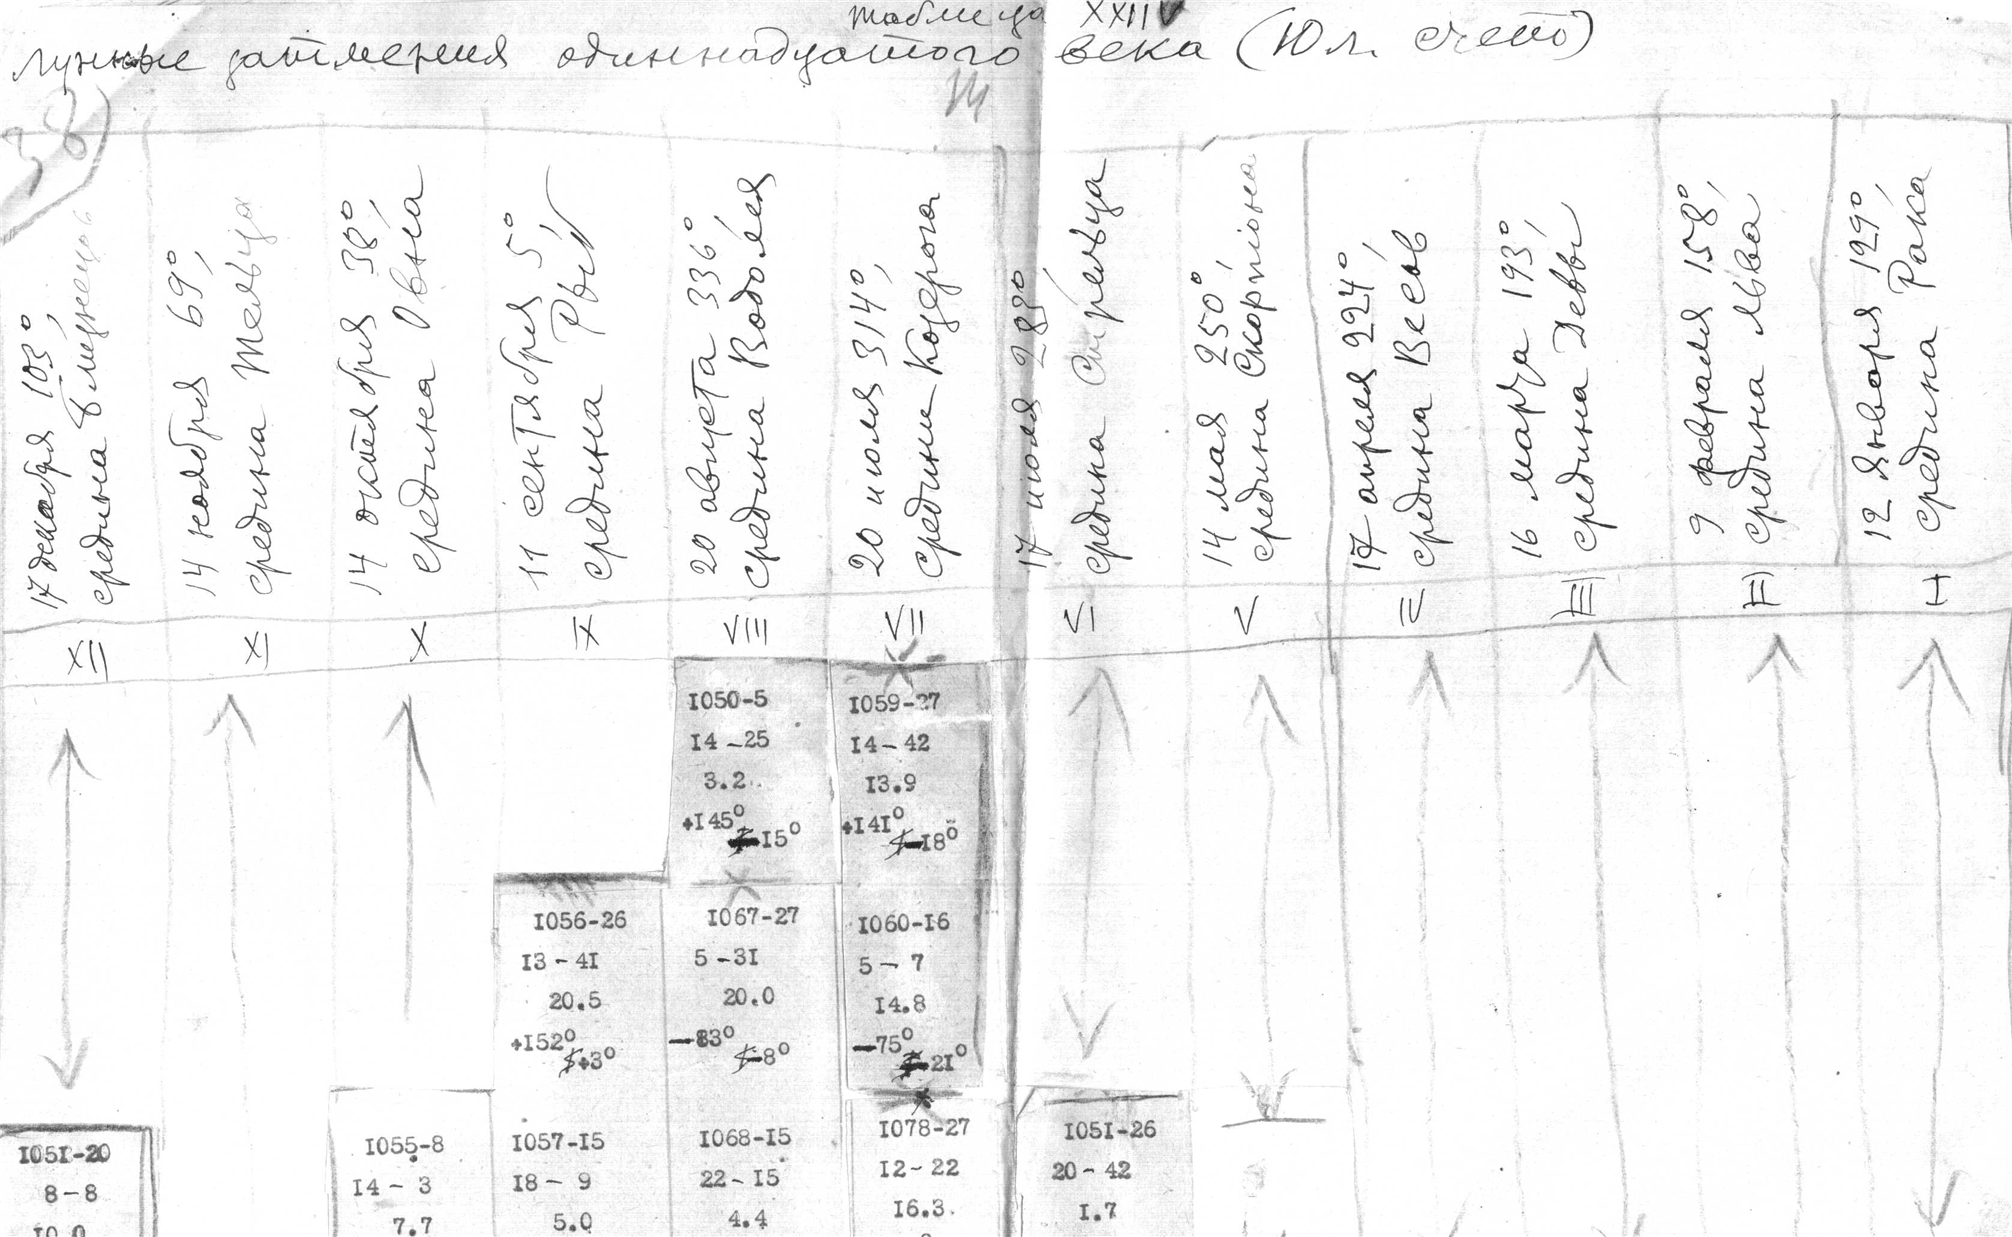 таблица XXIIV
лунные затмения одиннадцатого века (Юл. счет)
38)
14
17 декабря 103°,
средина Близнецов
14 ноября 69°,
средина Тельца
14 октября 38°,
средина Овна
11 сентября 5°
средина Рыб
20 августа 336°
средина Водолея
20 июля 314°,
средине Козерога
17 июля 288°
средина Стрельца
14 мая 250°
средина Скорпіона
17 апреля 224°,
средина Весов
16 марта 193°,
средина Девы
9 февраля 158°,
средина Льва
12 января 129°
средина Рака
XII
XI
X
IX
VIII
VII
VI
V
II
III
II
I
I050-5
I4-25
3.2
+I45°
-I5°
I059-27
I4-42
I3.9
+I4I°
-I8°
I056-26
I3-4I
20.5
+I52°
+3°
I067-27
5-3I
20.0
-83°
-8°
I060-I6
5-7
I4.8
-75°
-2I°
I05I-20
8-8
I0.0
I055-8
I4-3
7.7
I057-I5
I8-9
5.0
I068-I5
22-I5
4.4
I078-27
I2-22
I6.3
I05I-26
20-42
I.7